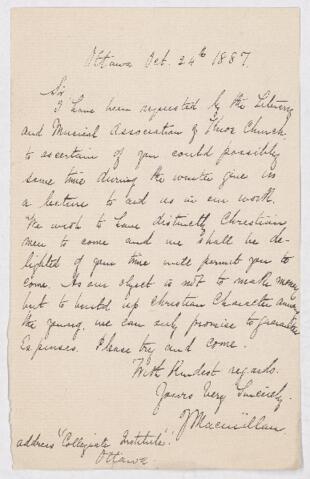 Ottawa Oct. 24th 1887.
Sir
I have been requested by the Literary
and Musical Association of Knox Church
to ascertain if you could possibly
some time during the winter give us
a lecture to aid us in our work.
We wish to have distinctly Christian
men to come and we shall be de-
lighted if your time will permit you to
come. As our object is not to make money
but to build up Christian Character among
the young, we can only promise to guarantee
expenses. Please try and come.
With Kindest regards.
Yours Very Sincerely.
J Macmillan
address "Collegiate Institute"
Ottawa